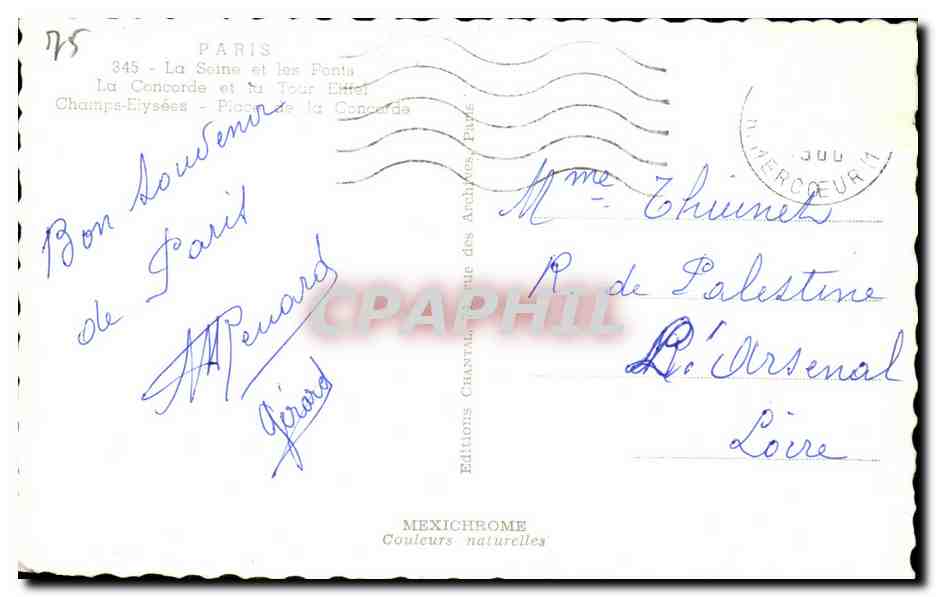 75
PARIS
345 - La Seine et les Ponts
La Concorde et la Tour Eiffel
Champs-Elysées - Place de la Concorde
Bon Souvenir
de Paris
Gérard
Editions CHANTAL, rue des Archives, Paris
MERCŒUR 11
Mme
R. de Palestine
L'Arsenal
Loire
CPAPHIL
MEXICHROME
Couleurs naturelles